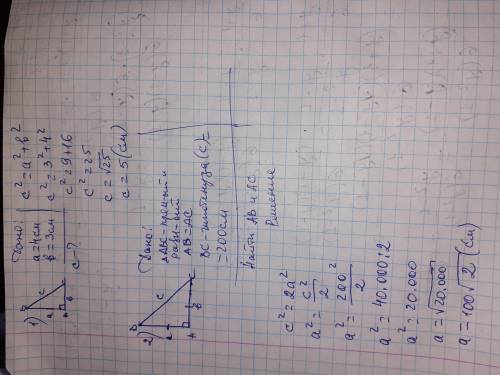 1)
B
a
c
A
b
C
Дано:
a=4см
b=3см
c-?
c²=a²+b²
c²=3²+4²
c²=9+16
c²=25
c=√25
c=5(см)
2)
B
a
c
A
b
C
Дано:
AB=AC
BC-гипотенуза(c)=
=200см
Найти AB и AC
Решение
c²=2a²
a²=c²/2
a²=200²/2
a²=40.000:2
a²=20.000
a=√20.000
a=100√2(см)